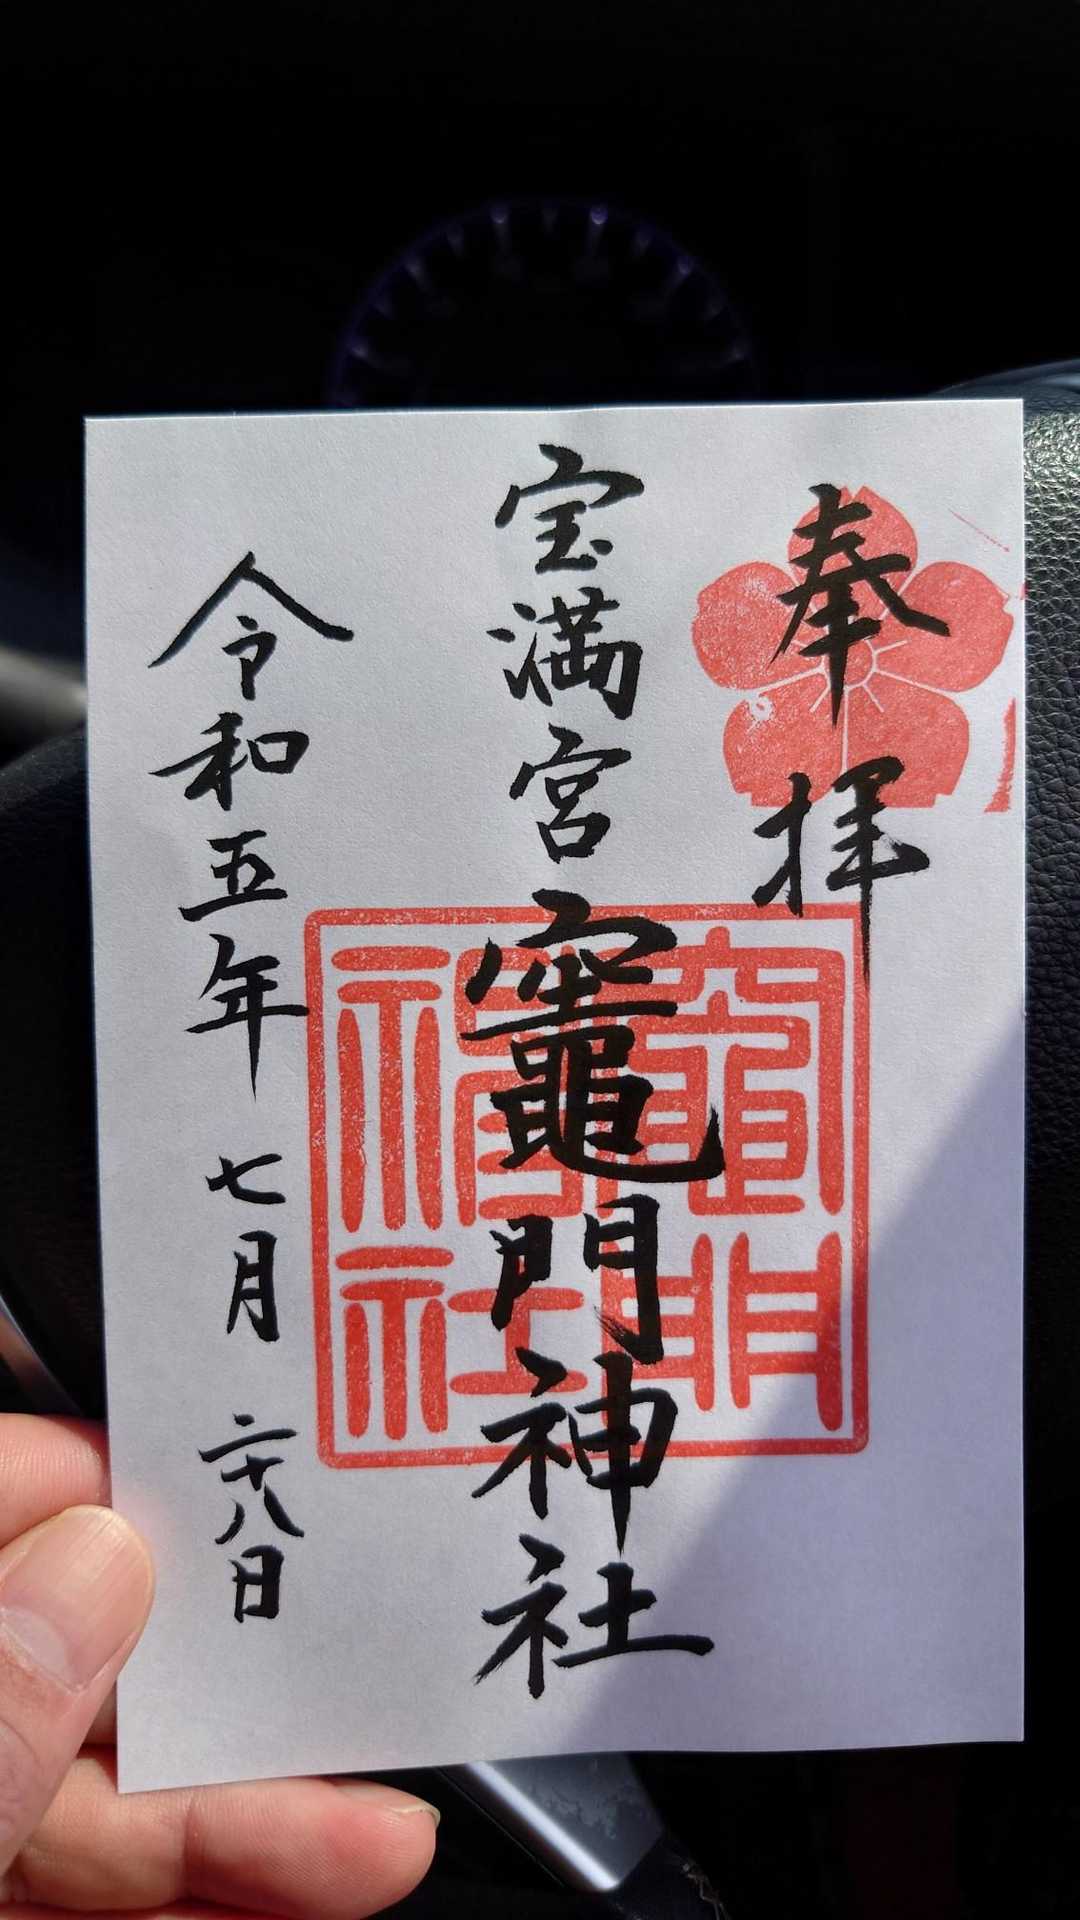 奉拝
宝満宮竈門神社
竈門神社
令和五年七月二十八日